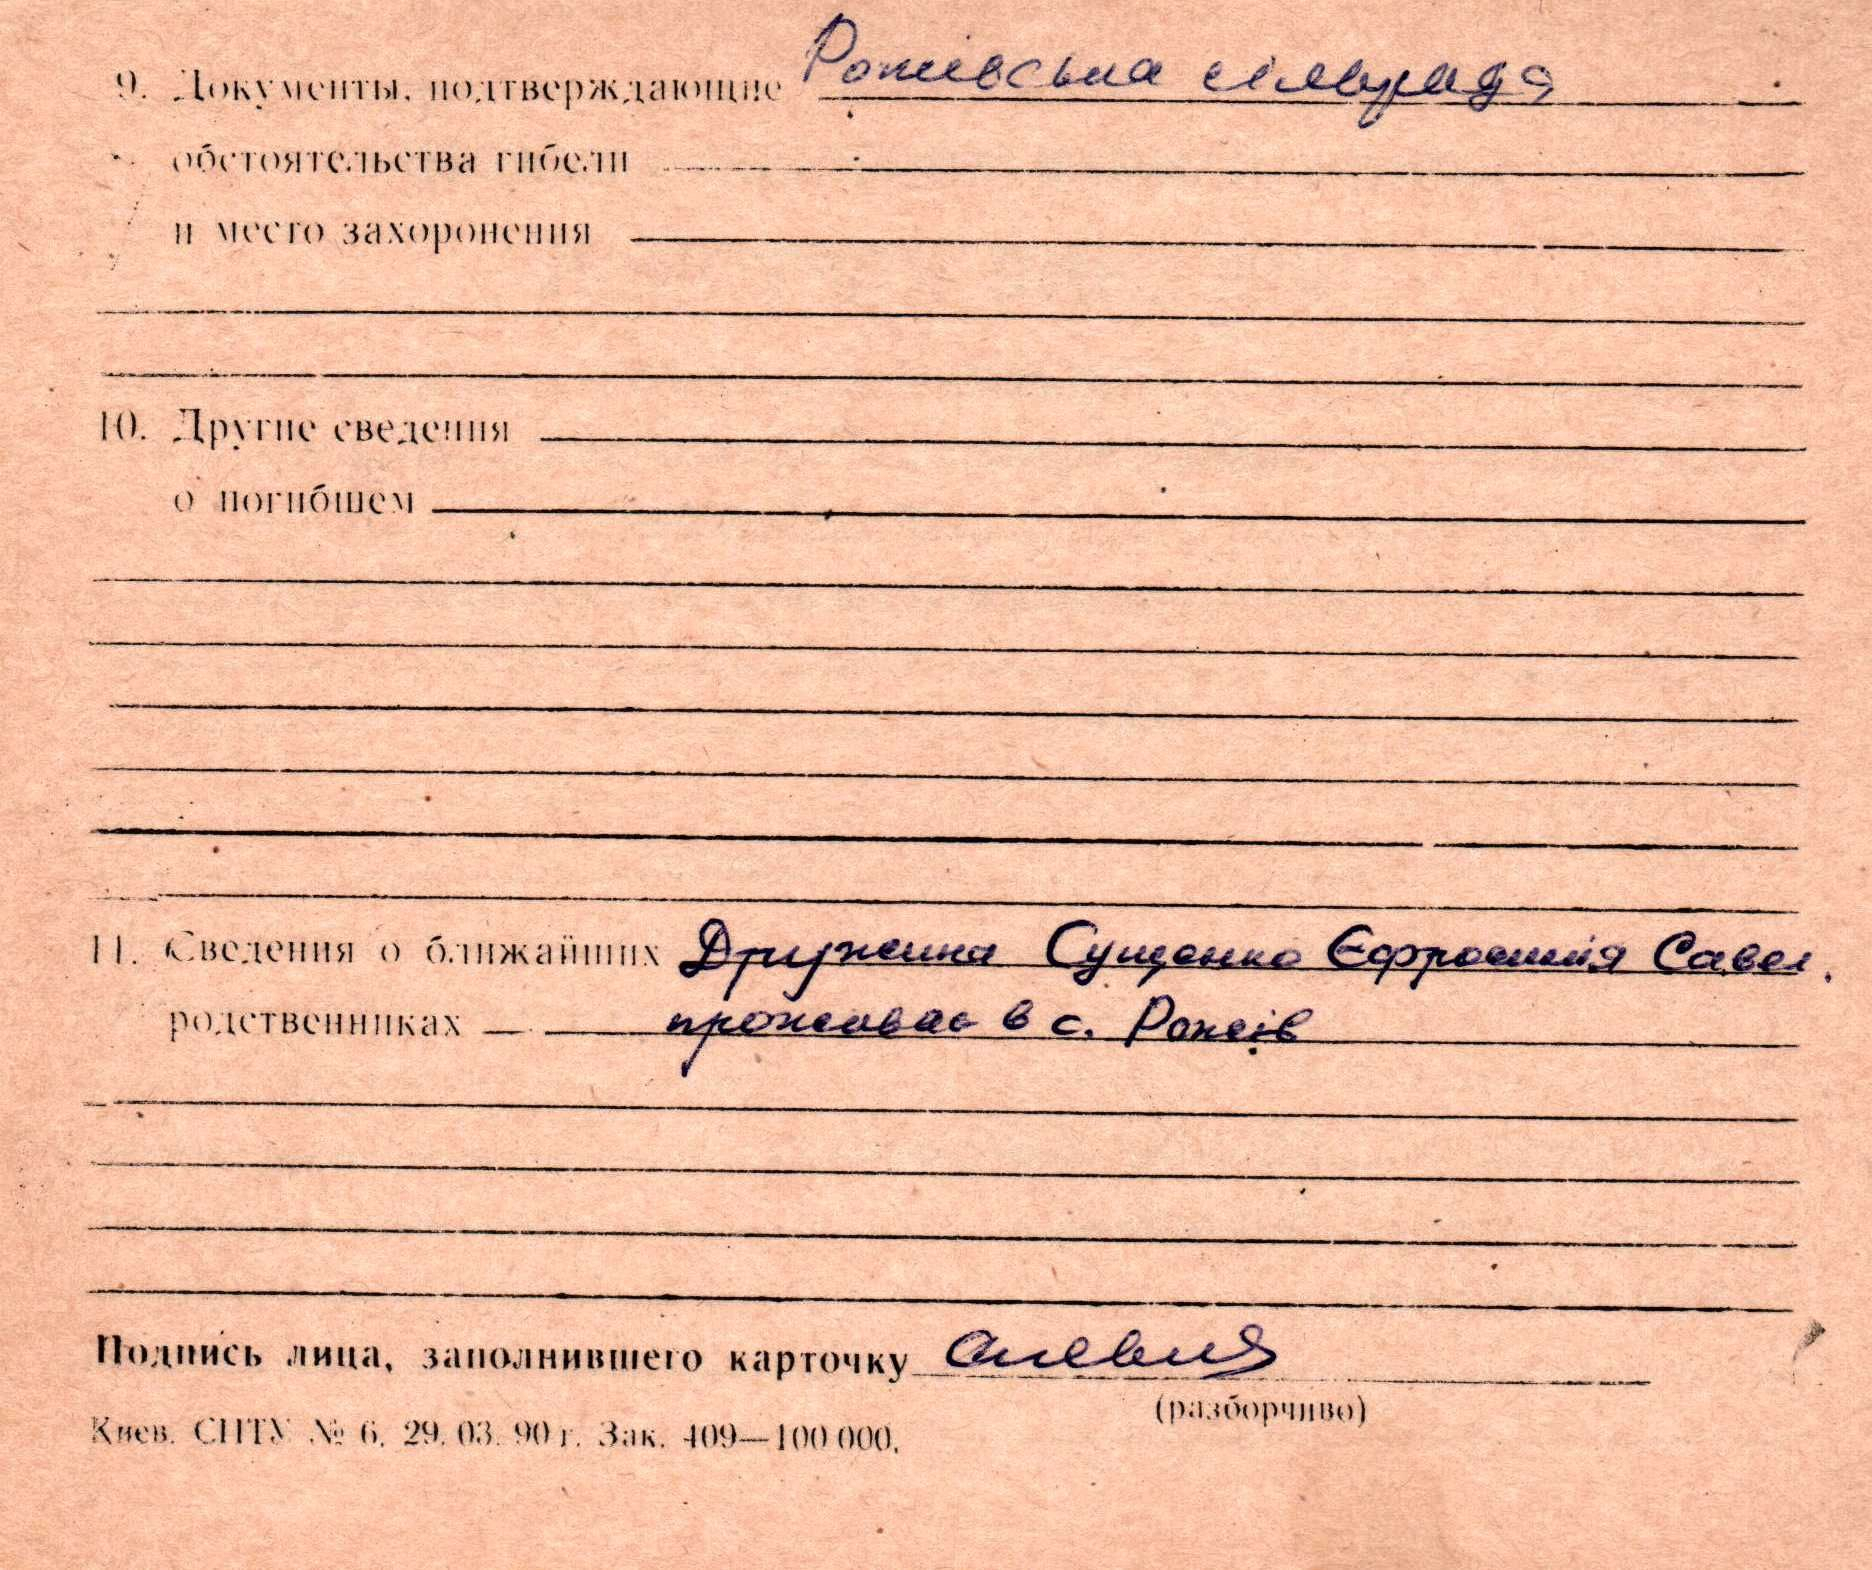 9. Документы, подтверждающие Рожівська сільрада
обстоятельства гибели
и место захоронения
10. Другие сведения
о погибшем
11. Сведения о ближайших Дружина Сущенко Єфросинія Савел.
родственниках проживає в с. Рожів
Подпись лица, заполнившего карточку
(разборчиво)
Киев. СПТУ № 6. 29. 03. 90 г. Зак. 409—100 000.